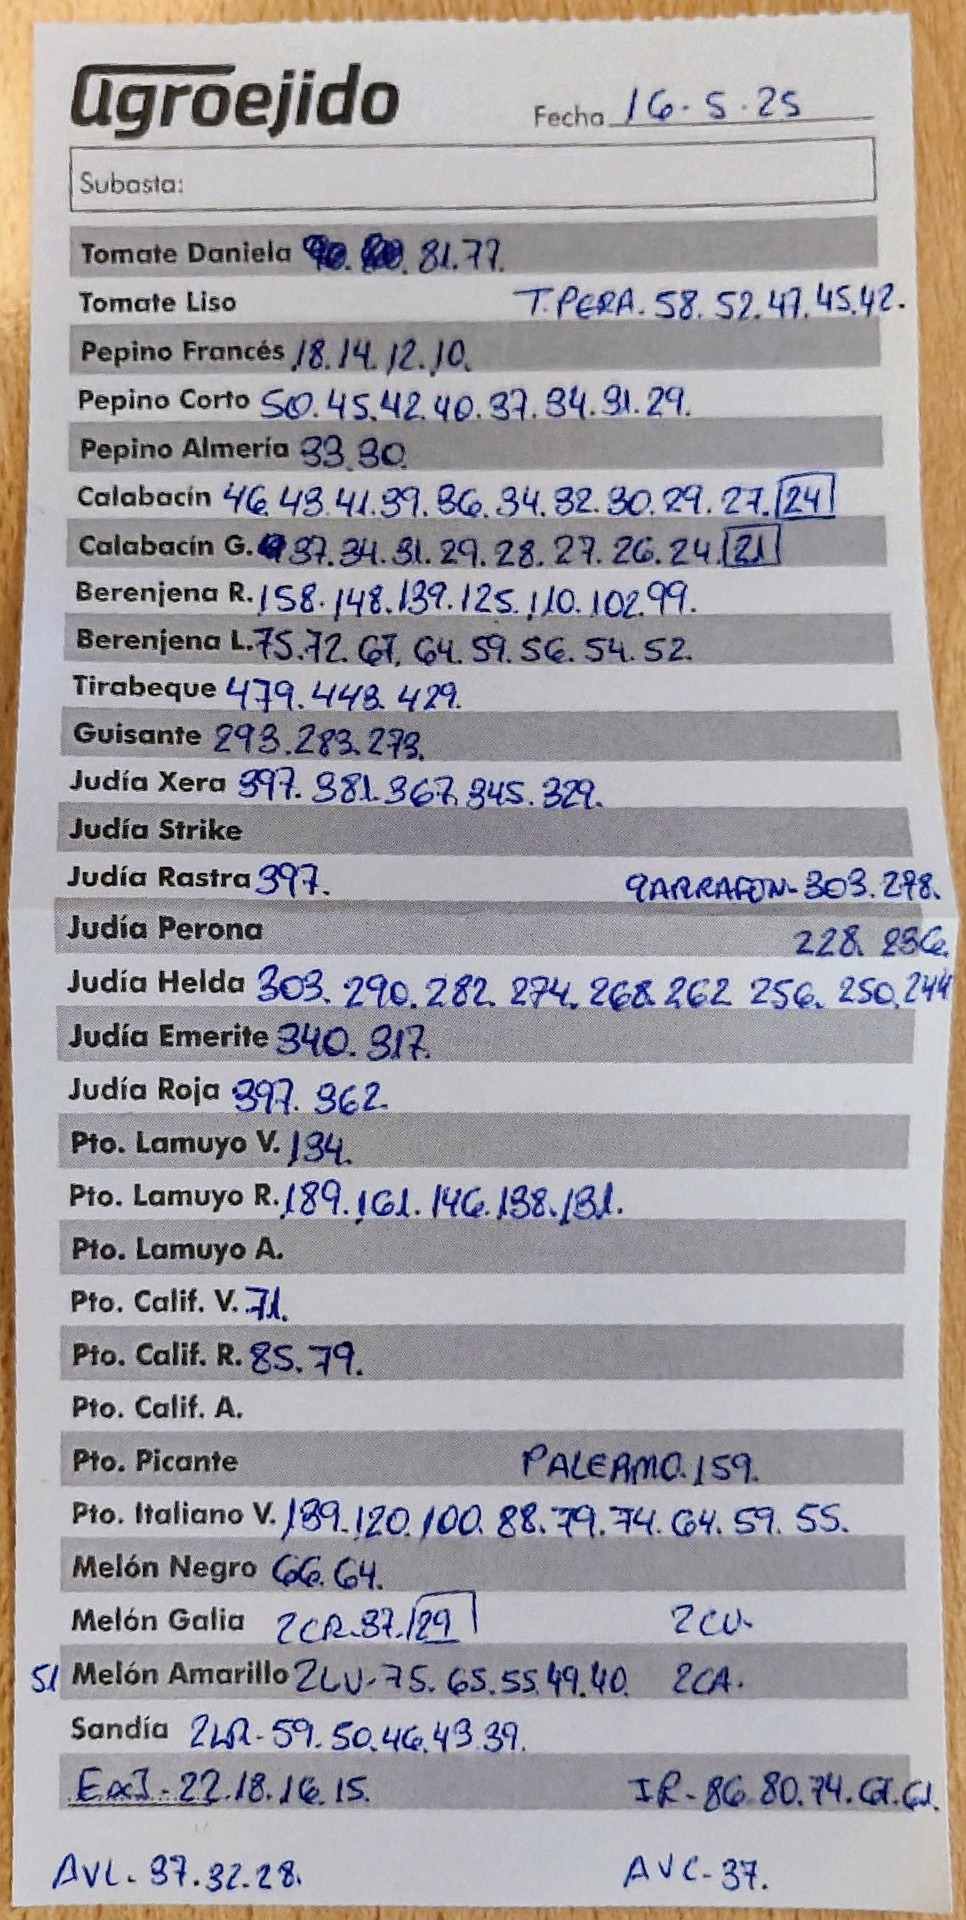 agroejido
Fecha 16.5.25
Subasta:
Tomate Daniela 81.77.
Tomate Liso T.PERA. 58. 52. 47. 45. 42.
Pepino Francés 18. 14. 12. 10.
Pepino Corto 50. 45. 42. 40. 37. 34. 31. 29.
Pepino Almería 33. 30.
Calabacín 46. 43. 41. 39. 36. 34. 32. 30. 29. 27. 24
Calabacín G. 37. 34. 31. 29. 28. 27. 26. 24. 21
Berenjena R. 158. 148. 139. 125. 110. 102. 99.
Berenjena L. 75. 72. 67. 64. 59. 56. 54. 52.
Tirabeque 479. 448. 429.
Guisante 293. 283. 273.
Judía Xera 397. 381. 367. 345. 329.
Judía Strike
Judía Rastra 397. GARRAFON- 303. 278.
Judía Perona 228. 236.
Judía Helda 303. 290. 282. 274. 268. 262 256. 250. 244
Judía Emerite 340. 317.
Judía Roja 397. 362.
Pto. Lamuyo V. 134.
Pto. Lamuyo R. 189. 161. 146. 138. 131.
Pto. Lamuyo A.
Pto. Calif. V. 71.
Pto. Calif. R. 85. 79.
Pto. Calif. A.
Pto. Picante PALERMO. 159.
Pto. Italiano V. 139. 120. 100. 88. 79. 74. 64. 59. 55.
Melón Negro 66. 64.
Melón Galia 2CR-37. 29 2CV-
51 Melón Amarillo 2LV-75. 65. 55. 49. 40. 2CA.
Sandía 2LR- 59. 50. 46. 43. 39.
22. 18. 16. 15. IR- 86. 80. 74. 67. 61.
AVL- 37. 32. 28. AVC- 37.